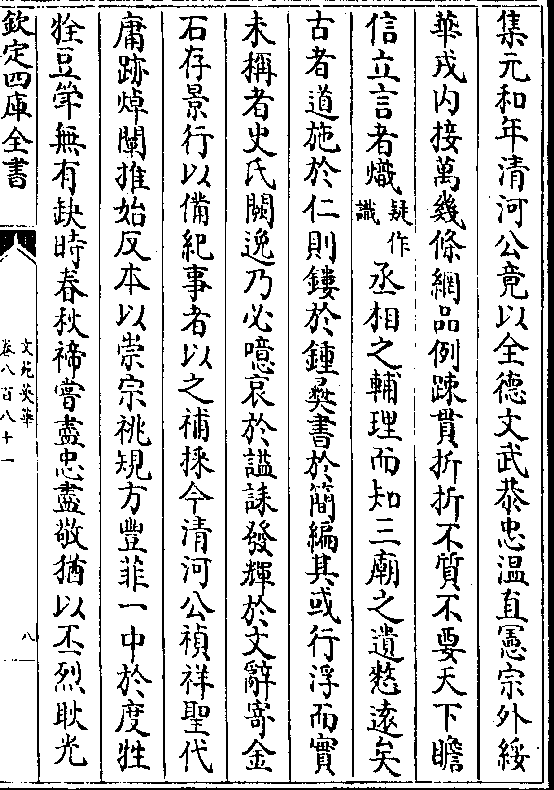 集元和年清河公竟以全德文武恭忠溫直憲宗外綏
華戎内接萬幾條綱品例踈貫折折不質不要天下瞻
信立言者熾疑作識丞相之輔理而知三廟之遺慭遠矣
古者道施於仁則鏤於鍾彞書於簡編其或行浮而實
未稱者史氏闕逸乃必噫哀於謚誄發輝於文辭寄金
石存景行以備紀事者以之補採今清河公禎祥聖代
庸跡焯闡推始反本以崇宗祧規方豐菲一中於度牲
牷豆㽅無有缺時春秋禘嘗盡忠盡敬猶以丕烈耿光
欽定四庫全書
文苑英華
卷八百八十一
八